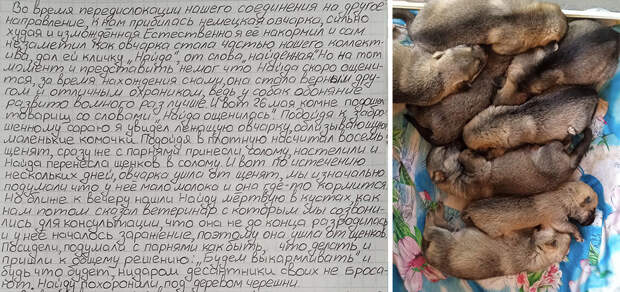 Во время передислокации нашего соединения на другое
направление, к нам прибилась немецкая овчарка, сильно
худая и измождённая. Естественно я её накормил и сам
незаметил как овчарка стала частью нашего коллект-
ива, дал ей кличку „Найда", от слова „найденная". Но на тот
момент и представить немог что Найда скоро ощени-
тся, за время нахождения с нами, она стала верным дру-
гом и отличным охраником, ведь у собак обоняние
развито вомного раз лучше. И вот 26 мая комне подошел
товарищ со словами „Найда ощенилась". Подойдя к забро-
шенному сараю я увидел лежащую овчарку, облизывающую
маленькие комочки. Подойдя в плотную насчитал восемь
щенят, сразу же с парнями принесли, солому, настелили и
Найда перенесла щенков в солому. И вот по истечению
нескольких дней, овчарка ушла от щенят, мы изначально
подумали что у неё мало молока и она где-то кормится.
Но ближе к вечеру нашли Найду мёртвую в кустах, как
нам потом сказал ветеринар с которым мы созвони-
лись для консультации, что она не до конца разродилась
и у неё началось заражение, поэтому она ушла от щенков.
Посидели, подумали с парнями как быть, что делать, и
пришли к общему решению: „Будем выкармливать" и
будь что будет, нидаром десантники своих не броса-
ют. Найду похоронили, под деревом черешни.